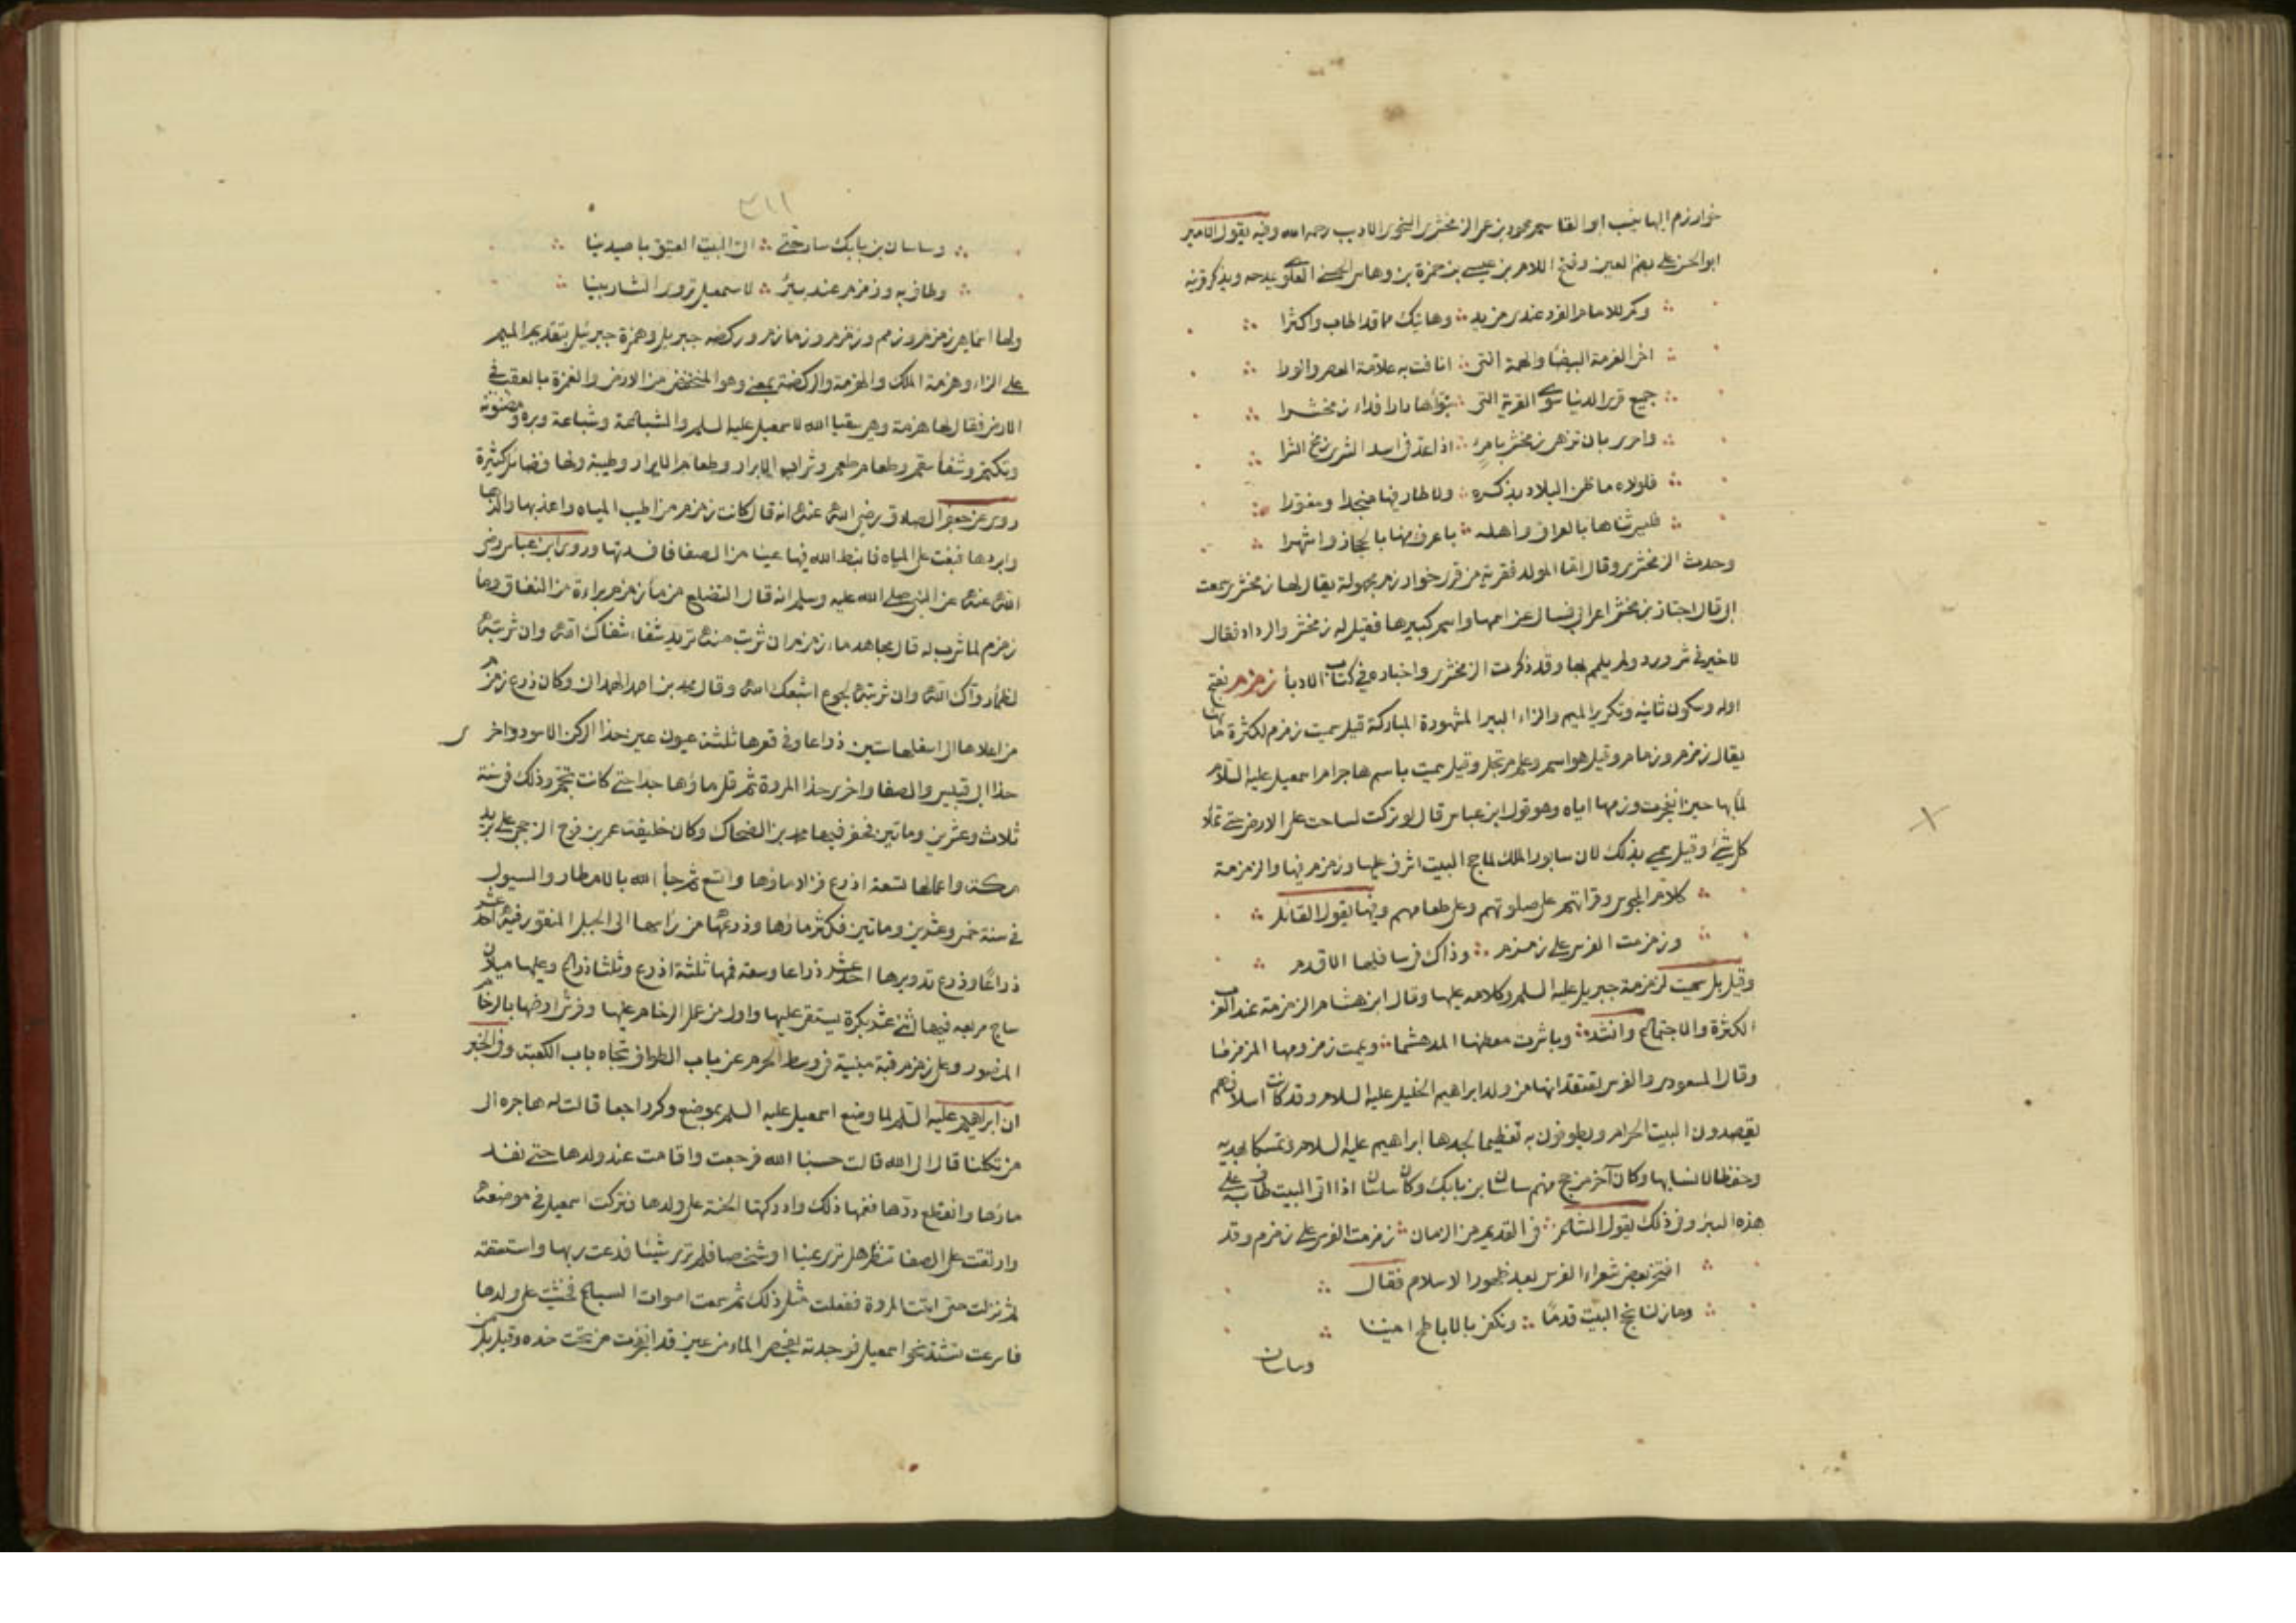 خوارزم اليها ينسب ابو القاسم محمود بن عمر الزمخشرى النحوى الاديب رحمه الله وفيه يقول الامير
ابو الحسن على بضم العين وفتح اللام بن عيسى بن حمزة بن وهاس الحسنى العلوى يمدحه ويذكر قريته
وكم للامام الفرد عندى من يد وهاتيك مما قد اطاب واكثرا
اخى العزمة البيضا والهمة التى انافت به علامة العصر والورا
جميع قرى الدنيا سوى القرية التى تبوأها دارا فداء زمخشرا
واحرى بان تزهى زمخشر بامرئ اذا عد فى اسد الشرى زمخ الشرا
فلولاه ما طن البلاد بذكره ولا طار فيها منجدا ومغورا
فليس ثناها بالعراق واهله باعرف منها بالحجاز واشهرا
وحدث الزمخشرى وقال اما المولد فقرية من قرى خوارزم مجهولة يقال لها زمخشر سمعت
ابى قال اجتاز بزمخشر اعرابى فسال عن اسمها واسم كبيرها فقيل له زمخشر والرداد فقال
لا خير فى شر ورد ولم يلمم بها وقد ذكرت الزمخشرى واخباره فى كتاب الادبا زمزم بفتح
اوله وسكون ثانيه وتكرير الميم والزاء البير المشهورة المباركة قيل سميت زمزم لكثرة مائها
يقال زمزم وزمازم وقيل هو اسم وعلم مرتجل وقيل سميت باسم هاجر ام اسمعيل عليه السلام
لمائها حين انفجرت وزمها اياه وهو قول ابن عباس قال لو تركت لساحت على الارض حتى تملأ
كل شئ وقيل سمى بذلك لان سابور الملك لما حج البيت اشرف عليها وزمزم فيها والزمزمة
كلام المجوس وقراتهم على صلوتهم وعلى طعامهم وفيها يقول القائل
وزمزمت الفرس على زمزم وذاك فى سالفها الاقدم
وقيل بل سميت لزمزمة جبريل عليه السلم وكلامه عليها وقال ابن هشام الزمزمة عند العرب
الكثرة والاجتماع وانشد وباشرت معطنها المدهشما ويممت زمزومها المزمزما
وقال المسعودى والفرس تعتقد انها من ولد ابراهيم الخليل عليه السلام وقد كانت اسلافهم
يقصدون البيت الحرام ويطوفون به تعظيما لجدها ابراهيم عليه السلام وتمسكا بهديه
وحفظا لانسابها وكان آخر من حج منهم ساسان بن بابك وكان ساسان اذا اتى البيت طاف به على
هذه البئر وفى ذلك يقول الشاعر فى القديم من الزمان زمزمت الفرس على زمزم وقد
افتخر بعض شعراء الفرس بعد ظهور الاسلام فقال
وما زلنا نحج البيت قدما ونكفى بالاباطح امنينا
وساسان
٣١١
وساسان بن بابك سار حتى اتى البيت العتيق باصيدينا
وطاف به وزمزم عند بير لاسمعيل تروى الشاربينا
ولها اسماء هى زمزم وزمم وزمزم وزمازم وركضه جبريل وهمزة جبرئيل بتقديم الميم
على الزاء وهزمة الملك والهزمة والركضة بمعنى وهو المنخفض من الارض والغمزة بالعقب فى
الارض فقال لها هزمة وهى سقيا الله لاسمعيل عليه السلم والشباعة وشباعة وبره ومضنونة
وتكتم وشفا سقم وطعام طعم وشراب الابرار وطعام الابرار وطيبة ولها فضائل كثيرة
روى عن جعفر الصادق رضى الله عنه انه قال كانت زمزم من اطيب المياه واعذبها والذها
وابردها فبغت على المياه فانبط الله فيها عينا من الصفا فافسدتها وروى ابن عباس رضى
الله عنه عن النبى صلى الله عليه وسلم انه قال التضلع من ما زمزم براءة من النفاق وما
زمزم لما شرب له قال مجاهد ماء زمزم ان شربت منه تريد شفاء شفاك الله وان شربته
لظما رواك الله وان شربته لجوع اشبعك الله وقال محمد بن احمد الهمدانى وكان ذرع زمزم
من اعلاها الى اسفلها ستين ذراعا وفى قعرها ثلثة عيون عين حذا الركن الاسود واخرى
حذا ابى قبيس والصفا واخرى حذا المروة ثم قل ماؤها جدا حتى كانت تجم وذلك فى سنة
ثلاث وعشرين وماتين فحفر فيها محمد بن الضحاك وكان خليفة عمر بن فرج الرخجى على بريد
مكة واعمالها تسعة اذرع فزاد ماؤها واتسع ثم جا الله بالامطار والسيول
فى سنة خمس وعشرين وماتين فكثر ماؤها وذرعها من راسها الى الجبل المنقور فيه احد عشر
ذراعا وذرع تدويرها احد عشر ذراعا وسعة فمها ثلثة اذرع وثلثا ذراع وعليها ميلان
ساج مربعه فيها اثنى عشر بكرة يستقى عليها واول من عمل الرخام عليها وفرش ارضها بالرخام
المنصور وعلى زمزم قبة مبنية فى وسط الحرم عن باب الطواف تجاه باب الكعبة وفى الخبر
ان ابراهيم عليه السلم لما وضع اسمعيل عليه السلم بموضع وكر راجعا قالت له هاجره الى
من تكلنا قال الى الله قالت حسبنا الله فرجعت واقامت عند ولدها حتى نفد
ماؤها وانقطع درها فغمها ذلك وادركتها الحنة على ولدها فتركت اسمعيل فى موضعه
وارتقت على الصفا تنظر هل ترى عينا او شخصا فلم تر شيئا فدعت ربها واستسقته
ثم نزلت حتى اتت المروة ففعلت مثل ذلك ثم سمعت اصوات السباع فخشيت على ولدها
فاسرعت تشتد نحو اسمعيل فوجدته يفحص الماء من عين قد انفجرت من تحت خده وقيل بل من